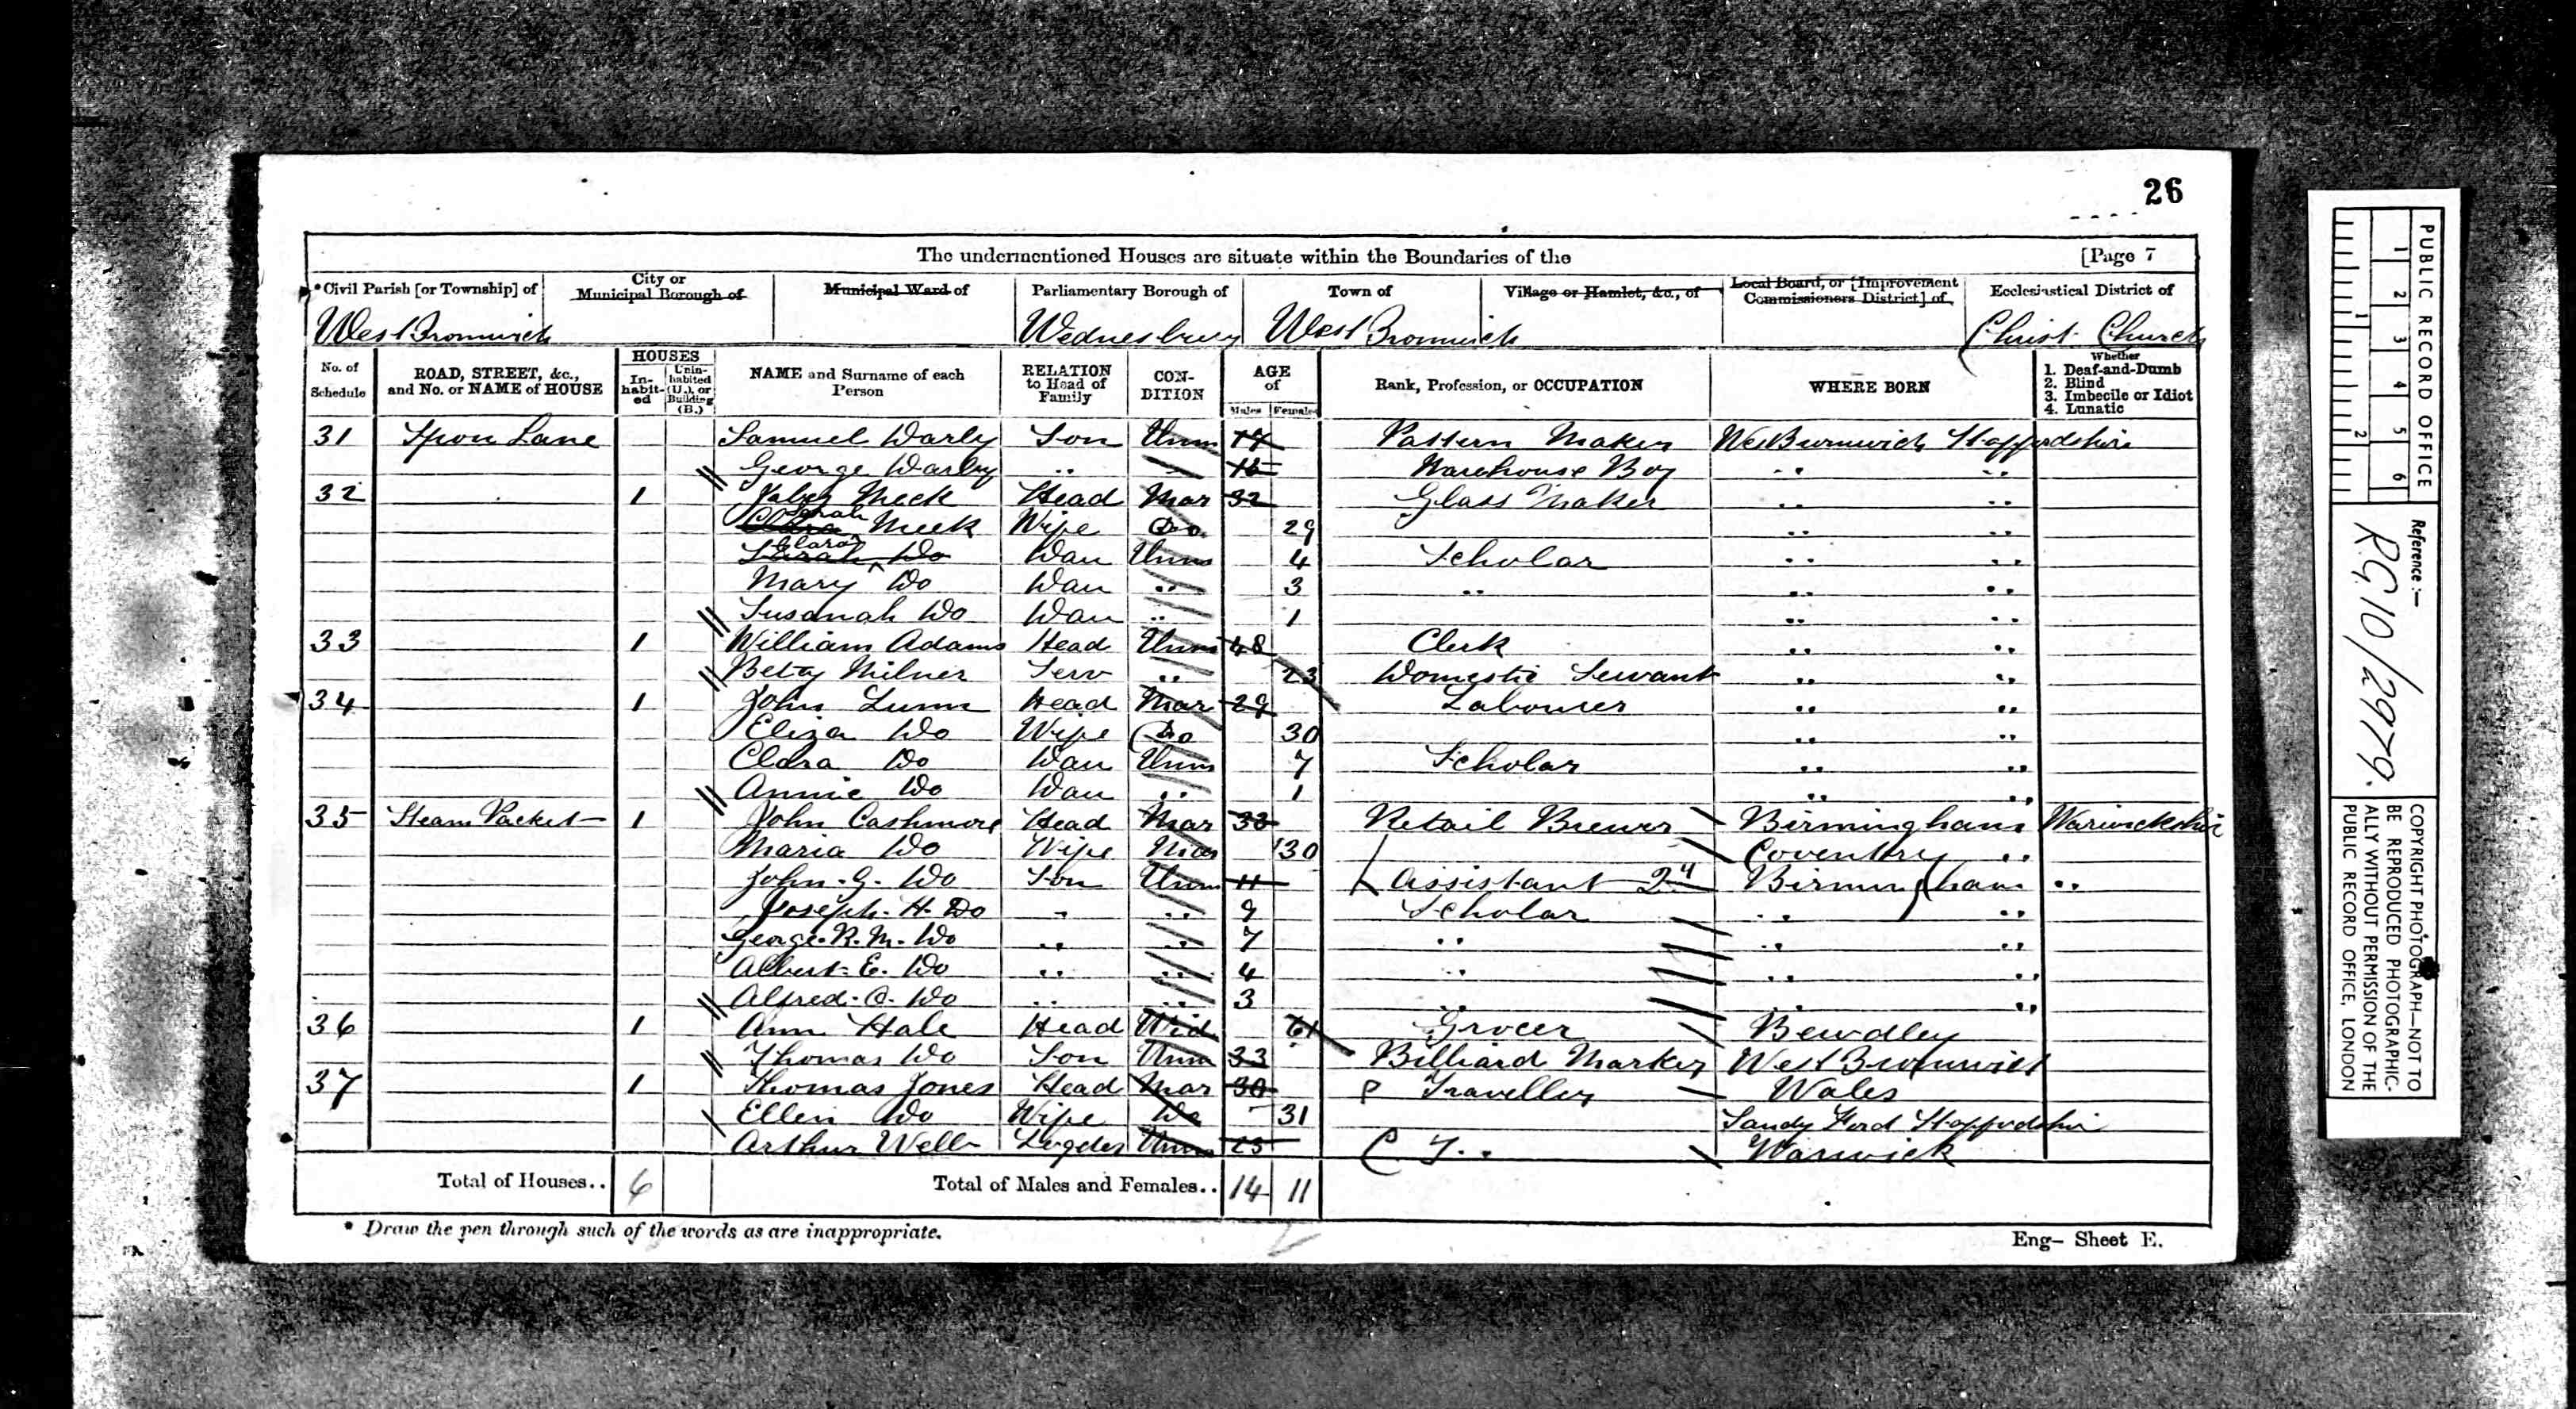 26
The undermentioned Houses are situate within the Boundaries of the [Page 7
*Civil Parish [or Township] of City or Municipal Borough of Municipal Ward of Parliamentary Borough of Town of Village or Hamlet, &c., of Local Board, or [Improvement Commissioners District] of Ecclesiastical District of
West Bromwich Wednesbury West Bromwich Christ Church
No. of Schedule ROAD, STREET, &c., and No. or NAME of HOUSE HOUSES In-habit-ed Unin-habited (U.), or Building (B.) NAME and Surname of each Person RELATION to Head of Family CON-DITION AGE of Males Females Rank, Profession, or OCCUPATION WHERE BORN Whether 1. Deaf-and-Dumb 2. Blind 3. Imbecile or Idiot 4. Lunatic
31 Spon Lane Samuel Darly Son Unm Pattern Maker Staffordshire
George Darby .. Warehouse Boy .. ..
32 1 Jabez Meek Head Mar 32 Glass Maker .. ..
Sarah Meek Wife Do 29 .. ..
Clara Do Dau Unm 4 Scholar .. ..
Mary Do Dau .. 3 .. .. ..
Susanah Do Dau .. 1 .. ..
33 1 William Adams Head Unm 48 Clerk .. ..
Betsy Milner Serv .. 23 Domestic Servant .. ..
34 1 John Lunn Head Mar 29 Labourer .. ..
Eliza Do Wife Do 30 .. ..
Clara Do Dau Unm 7 Scholar .. ..
Annie Do Dau .. 1 .. ..
35 Steam Packet 1 John Cashmore Head Mar 33 Retail Brewer Birmingham Warwickshire
Maria Do Wife Mar 30 Coventry ..
John. G. Do Son Unm 11 Assistant Birmingham ..
Joseph. H. Do .. .. 9 Scholar .. ..
George. R. M. Do .. .. 7 .. .. ..
Albert. E. Do .. .. 4 .. .. ..
Alfred. Do .. .. 3 .. .. ..
36 1 Ann Hale Head Wid 61 Grocer Bewdley
Thomas Do Son Unm 33 Billiard Marker West Bromwich
37 1 Thomas Jones Head Mar 30 Traveller Wales
Ellen Do Wife Do 31 Sandy Ford Staffordshire
Arthur Well Unm 23 C. T. Warwick
Total of Houses.. 6 Total of Males and Females.. 14 11
* Draw the pen through such of the words as are inappropriate.
Eng- Sheet E.
PUBLIC RECORD OFFICE
1 2 3 4 5 6
1 2
Reference :-
R.G.10/2979.
COPYRIGHT PHOTOGRAPH—NOT TO
BE REPRODUCED PHOTOGRAPHIC-
ALLY WITHOUT PERMISSION OF THE
PUBLIC RECORD OFFICE, LONDON